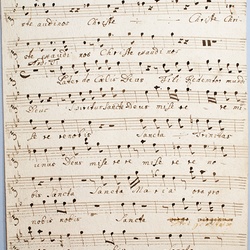 ste audi nos Christe Chri
ste exaudi nos Christe exaudi no
Pater de Cælis Deus Fili Redemptor mundi
Deus Spiritus Sancte Deus mise re re mi
se re re nobis Sancta Trinitas
unus Deus mise re re mise re re no
bis Sancta Maria ora pro
nobis nobis Sancta